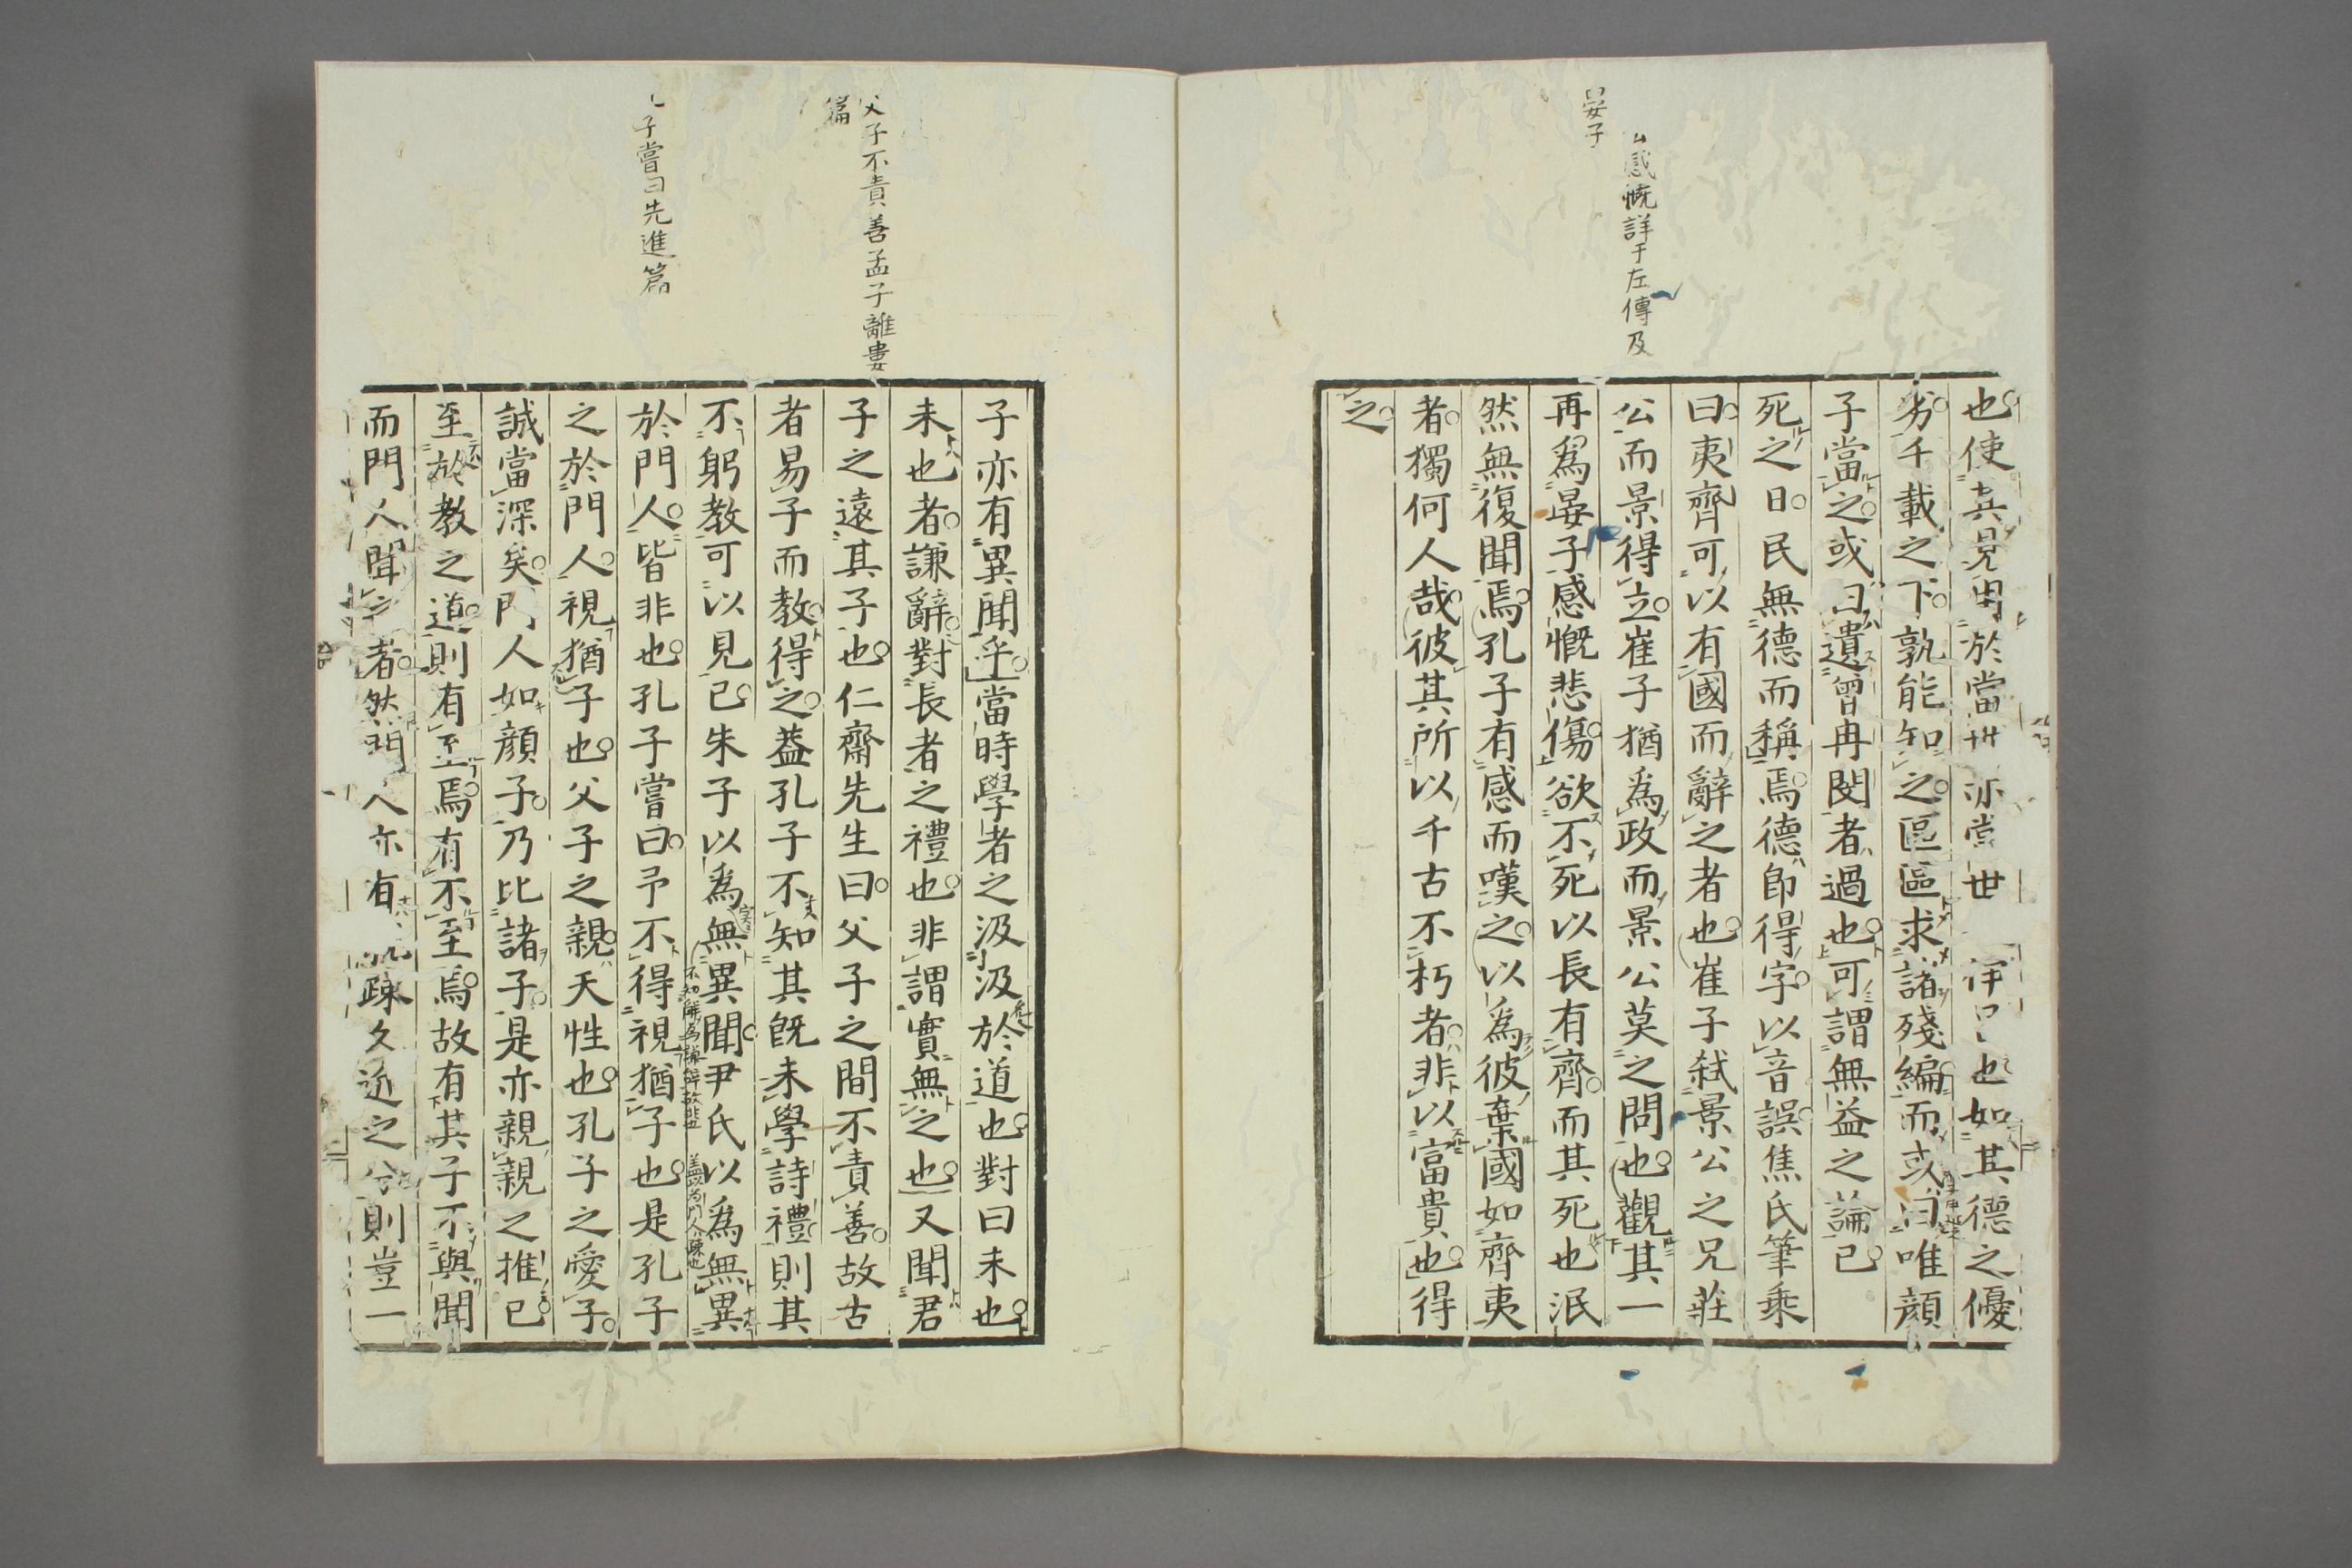 公感慨詳于左傳及
晏子
也使其見用於當世亦當世伊呂也如其德之優
劣千載之下孰能知之區區求諸殘編而或曰唯顔
子當之或曰遺曾冉閔者過也可謂無益之論已
死之日民無德而稱焉德即得字以音誤焦氏筆乘
曰夷齊可以有國而辭之者也崔子弑景公之兄莊
公而景得立崔子猶爲政而景公莫之問也觀其一
再爲晏子感慨悲傷欲不死以長有齊而其死也泯
然無復聞焉孔子有感而嘆之以為彼棄國如齊夷
者獨何人哉彼其所以千古不朽者非以富貴也得
之
父子不責善孟子離婁
篇
子嘗曰先進篇
子亦有異聞乎當時學者之汲汲於道也對曰未也
未也者謙辭對長者之禮也非謂實無之也又聞君
子之遠其子也仁齋先生曰父子之間不責善故古
者易子而教得之蓋孔子不知其既未學詩禮則其
不躬教可以見已朱子以爲無異聞尹氏以爲無異
不知解為謙辭故非也
於門人皆非也孔子嘗曰予不得視猶子也是孔子
之於門人視猶子也父子之親天性也孔子之愛子
誠當深矣門人如顔子乃比諸子是亦親親之推已
至於教之道則有至焉有不至焉故有其子不與聞
而門人聞之者然門人亦有親疎久近之分則豈一